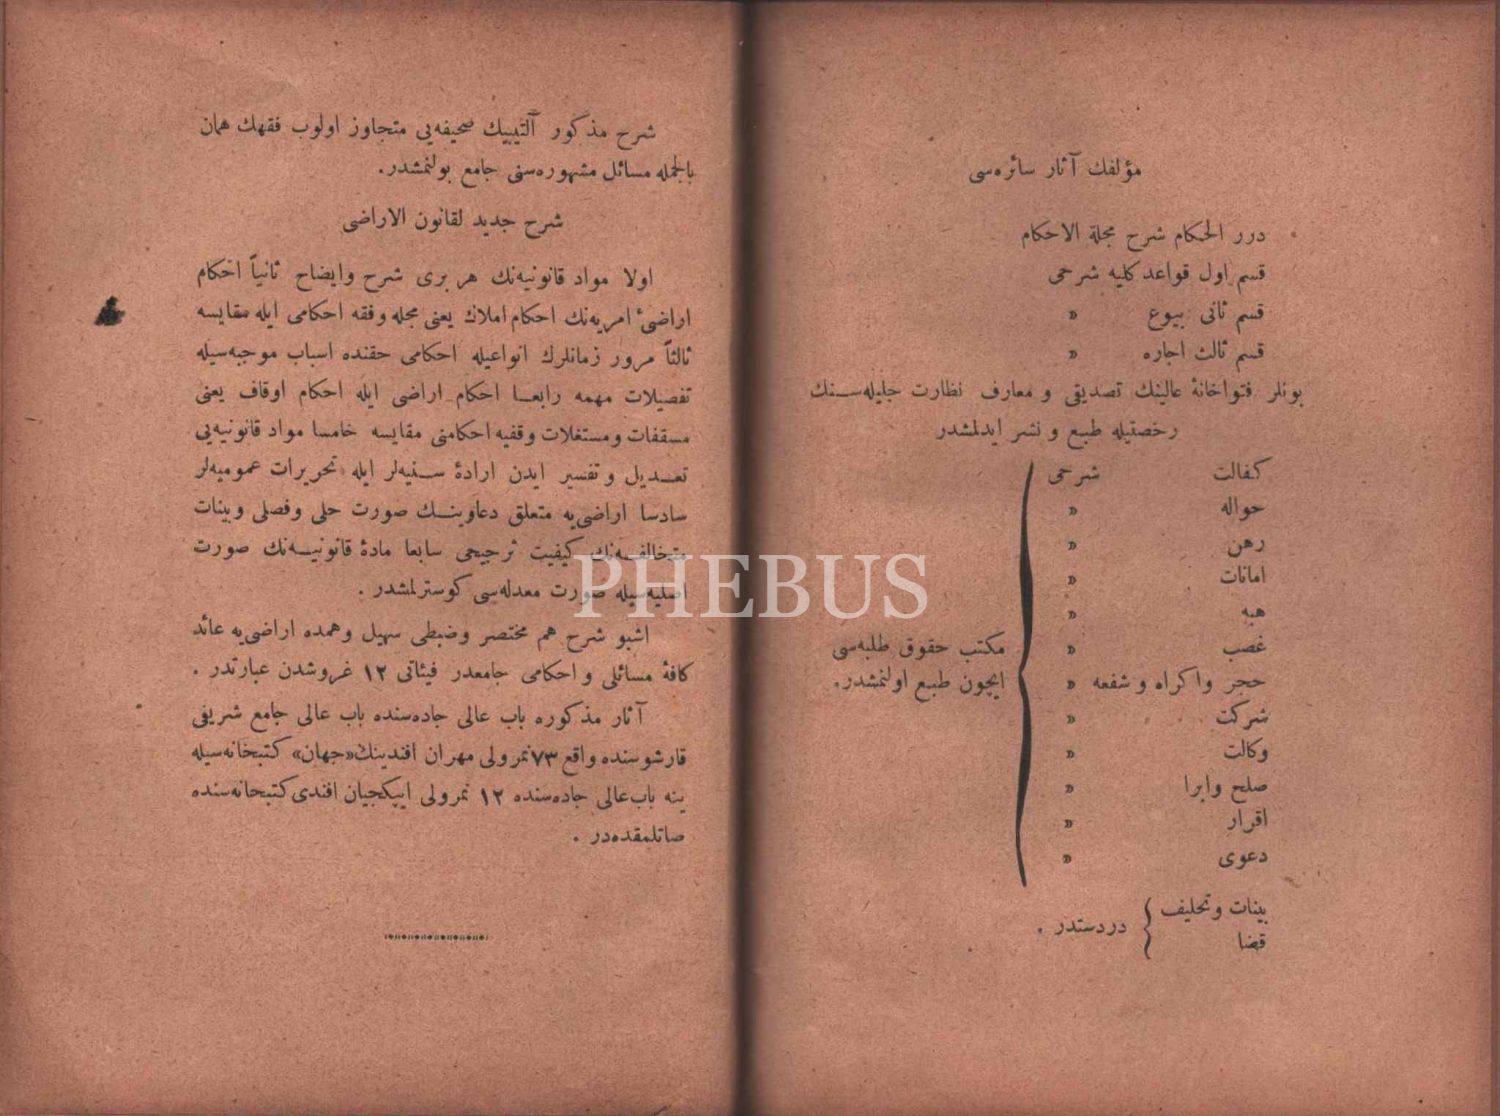 مؤلفك آثار سائره‌سی
درر الحكام شرح مجلة الاحكام
قسم اول قواعد كليه شرحی
قسم ثانی بيوع »
قسم ثالث اجاره »
بونلر فتواخانۀ عالينك تصديقی و معارف نظارت جليله‌سـنك
رخصتيله طبع و نشر ايدلمشدر
كفالت شرحی
حواله »
رهن »
امانات »
هبه »
غصب »
حجر واكراه و شفعه »
شركت »
وكالت »
صلح وابرا »
اقرار »
دعوی »
مكتب حقوق طلبه‌سی
ايچون طبع اولنمشدر.
بينات وتحليف
قضا
دردستدر .
شرح مذكور آلتيبيك صحيفه‌يی متجاوز اولوب فقهك همان
بالجمله مسائل مشهوره‌سنی جامع بولنمشدر.
شرح جديد لقانون الاراضی
اولا مواد قانونيه‌نك هر بری شرح وايضاح ثانياً احكام
اراضیٔ اميريه‌نك احكام املاك يعنی مجله وفقه احكامی ايله مقايسه
ثالثاً مرور زمانلرك انواعيله احكامی حقنده اسباب موجبه‌سيله
تفصيلات مهمه رابعـا احكام اراضی ايله احكام اوقاف يعنی
مسقفات ومستغلات وقفيه احكامنی مقايسه خامسا مواد قانونيه‌یی
تعـديل وتفسير ايدن ارادۀ سـنيه‌لر ايله تحريرات عموميه‌لر
سادسا اراضی‌يه متعلق دعاوينـك صورت حلی وفصلی وبينات
متخالفـه‌نك كيفيت ترجيحی سابعا مادۀ قانونيـه‌نك صورت
اصليه‌سيله صورت معدله‌سی كوسترلمشدر .
اشبو شرح هم مختصر وضبطی سهيل وهمده اراضی‌يه عائد
كافۀ مسائلی و احكامی جامعدر فيئاتی ١٢ غروشدن عبارتدر .
آثار مذكوره باب عالی جاده‌سنده باب عالی جامع شريفی
قارشوسنده واقع ٧٣ نمرولی مهران افندينك «جهان» كتبخانه‌سيله
ينه باب‌عالی جاده‌سنده ١٢ نمرولی ايپكجيان افندی كتبخانه‌سنده
صاتلمقده‌در .
PHEBUS